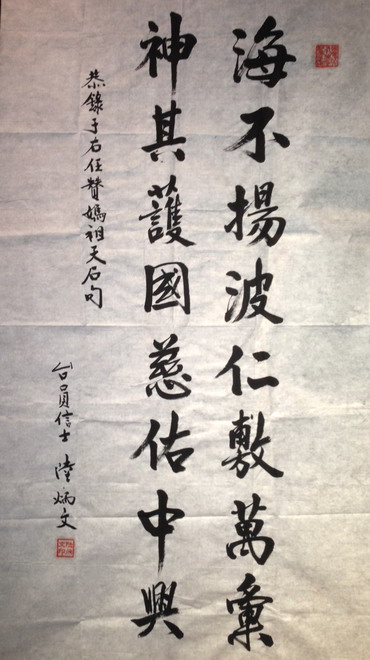 海不揚波仁敷萬彙
神其護國慈佑中興
恭錄于右任贊媽祖天后句
台員信士 陸炳文